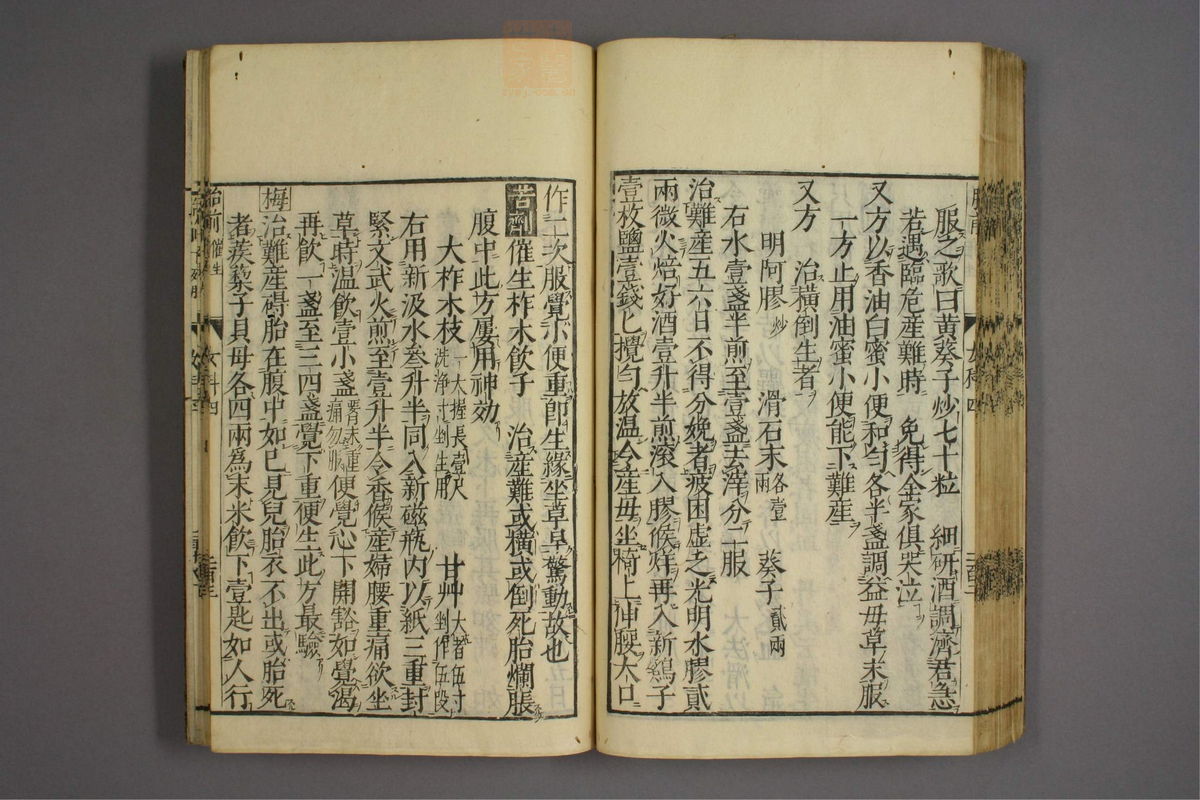 服之歌曰黄葵子炒七十粒 細研酒調濟君急
若遇臨危産難時 免得全家俱哭泣
又方以香油白蜜小便和匀各半盞調益母草末服
一方止用油蜜小便能下難産
又方 治横倒生者
明阿膠炒 滑石末各壹兩 葵子貳兩
右水壹盞半煎至壹盞去滓分二服
治難産五六日不得分娩者疲困虚乏光明水膠貳
兩微火焙好酒壹升半煎滚入膠候烊再入新鷄子
壹枚鹽壹錢匕攪匀放温令産母坐椅上伸腰大口
作二次服覺小便重即生緣坐草早驚動故也
苦齋 催生柞木飲子 治産難或横或倒死胎爛脹
腹中此方屢用神効
大柞木枝一大握長壹尺洗浄寸剉生用 甘艸大者伍寸剉作伍段
右用新汲水叁升半同入新磁瓶内以紙三重封
緊文武火煎至壹升半令香候産婦腰重痛欲坐
草時温飲壹小盞腰未重痛勿服便覺心下開豁如覺渴
再飲一盞至三四盞覺下重便生此方最驗
梅 治難産碍胎在腹中如已見兒胎衣不出或胎死
者蒺藜子貝母各四兩為末米飲下壹匙如人行
胎前 催生
女科四